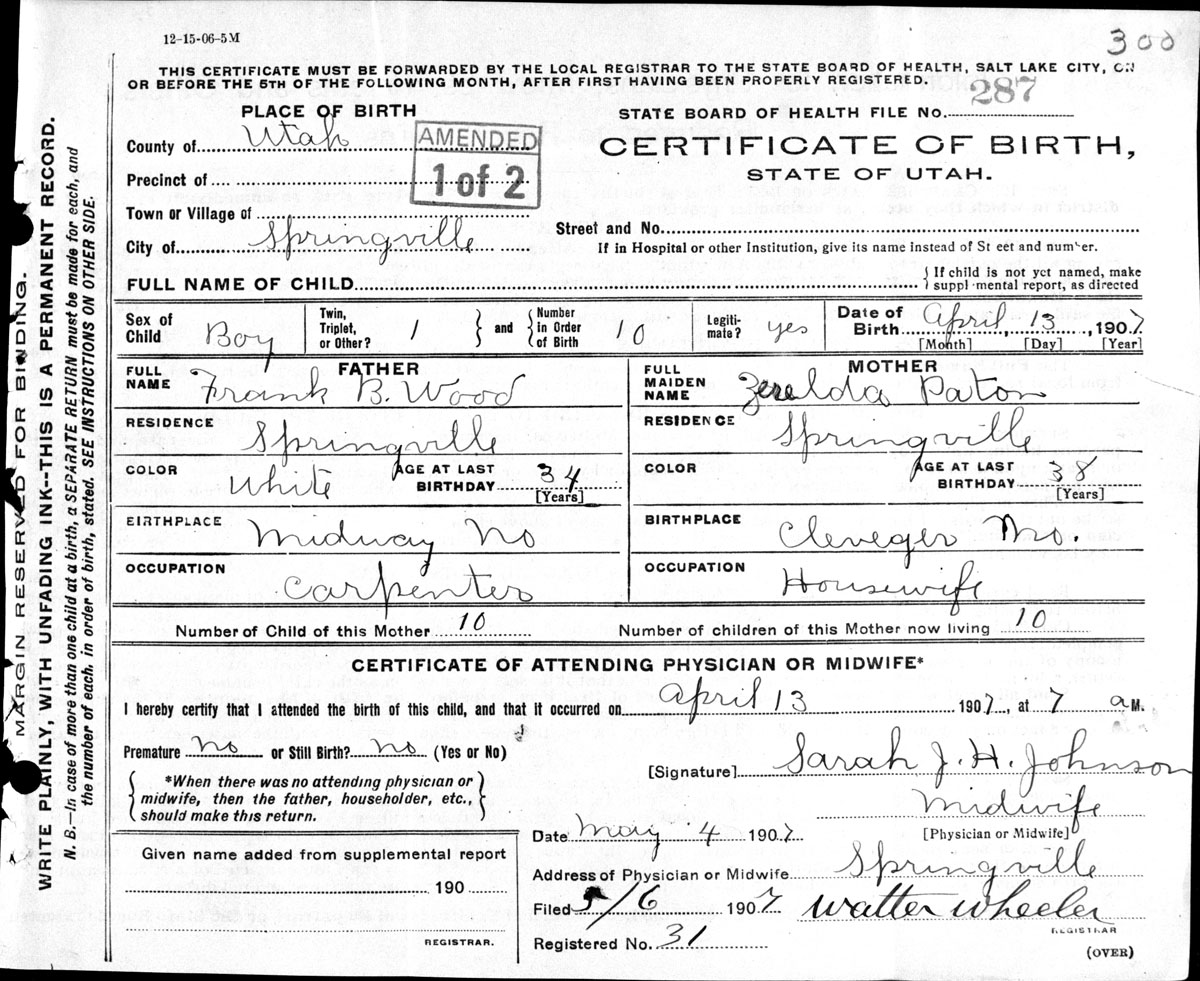 12-15-06-5M
300
THIS CERTIFICATE MUST BE FORWARDED BY THE LOCAL REGISTRAR TO THE STATE BOARD OF HEALTH, SALT LAKE CITY, ON
OR BEFORE THE 5TH OF THE FOLLOWING MONTH, AFTER FIRST HAVING BEEN PROPERLY REGISTERED.
PLACE OF BIRTH
County of Utah
AMENDED
1 of 2
Precinct of
Town or Village of
City of Springville
STATE BOARD OF HEALTH FILE No. 287
CERTIFICATE OF BIRTH,
STATE OF UTAH.
Street and No.
If in Hospital or other Institution, give its name instead of St eet and number.
FULL NAME OF CHILD
{ If child is not yet named, make
suppl mental report, as directed
Sex of
Child Boy
Twin,
Triplet,
or Other? 1
} and {
Number
in Order
of Birth 10
Legiti-
mate? yes
Date of
Birth April 13, 1907
[Month] [Day] [Year]
FATHER
FULL
NAME Frank B. Wood
RESIDENCE
Springville
COLOR
White
AGE AT LAST
BIRTHDAY 34
[Years]
BIRTHPLACE
Midway
OCCUPATION
Carpenter
MOTHER
FULL
MAIDEN
NAME Zerelda Paton
RESIDENCE
Springville
COLOR
AGE AT LAST
BIRTHDAY 38
[Years]
BIRTHPLACE
Cleveger Mo.
OCCUPATION
Housewife
Number of Child of this Mother 10
Number of children of this Mother now living 10
CERTIFICATE OF ATTENDING PHYSICIAN OR MIDWIFE*
I hereby certify that I attended the birth of this child, and that it occurred on April 13 1907, at 7 a M.
Premature no or Still Birth? No (Yes or No)
{ *When there was no attending physician or
midwife, then the father, householder, etc.,
should make this return. }
[Signature] Sarah J. H. Johnson
Midwife
[Physician or Midwife]
Date May 4 1907
Address of Physician or Midwife Springville
Filed 5/6 1907 Walter Wheeler
REGISTRAR
Registered No. 31
(OVER)
Given name added from supplemental report
190
REGISTRAR.
MARGIN RESERVED FOR BINDING.
WRITE PLAINLY, WITH UNFADING INK--THIS IS A PERMANENT RECORD.
N. B.—In case of more than one child at a birth, a SEPARATE RETURN must be made for each, and
the number of each, in order of birth, stated. SEE INSTRUCTIONS ON OTHER SIDE.